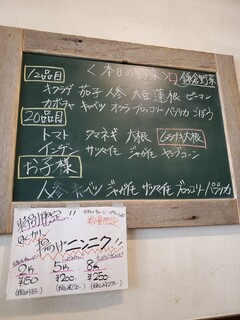 12品目 <本日の野菜> 鎌倉野菜
キクラゲ 茄子 人参 大豆 蓮根 ピーマン
カボチャ キャベツ オクラ ブロッコリー パプリカ ごぼう
20品目
トマト 玉ネギ 大根 大根
インゲン サツマイモ ジャガイモ ヤングコーン
お子様
人参 キャベツ ジャガイモ サツマイモ ブロッコリー パプリカ
特別限定!!
数量限定
揚げニンニク!!
2ヶ 5ヶ 8ヶ
¥150 ¥200 ¥250